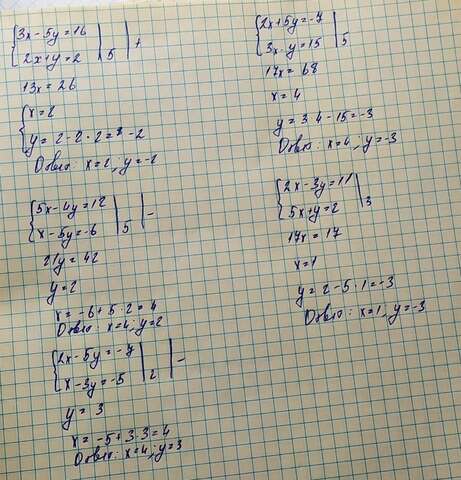 {3x-5y=16 | | +
{2x+y=2 | 5 |
13x=26
{x=2
{y=2-2·2=-2
Ответ: x=2; y=-2
{5x-4y=12 | | -
{x-5y=-6 | 5 |
21y=42
y=2
x=-6+5·2=4
Ответ: x=4; y=2
{2x-5y=-7 | | -
{x-3y=-5 | 2 |
y=3
x=-5+3·3=4
Ответ: x=4; y=3
{2x+5y=-7 |
{3x-y=15 | 5
17x=68
x=4
y=3·4-15=-3
Ответ: x=4; y=-3
{2x-3y=11 |
{5x+y=2 | 3
17x=17
x=1
y=2-5·1=-3
Ответ: x=1, y=-3